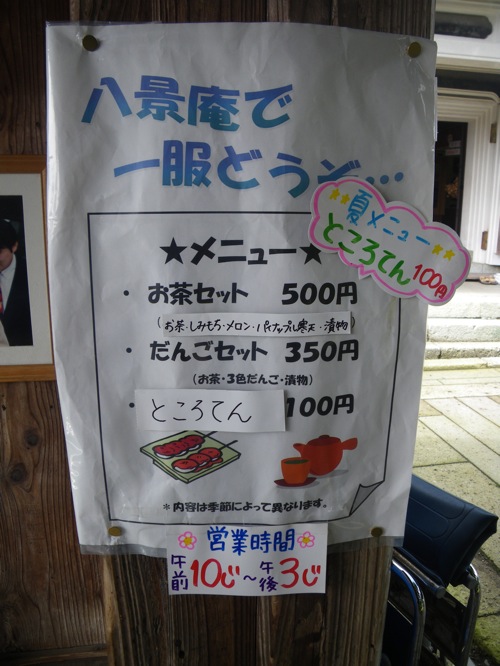 八景庵で
一服どうぞ…
夏メニュー
ところてん100円
★メニュー★
・お茶セット 500円
(お茶・しみもち・メロン・パイナップル寒天・漬物)
・だんごセット 350円
(お茶・3色だんご・漬物)
・ところてん 100円
＊内容は季節によって異なります。
営業時間
午前10じ～午後3じ